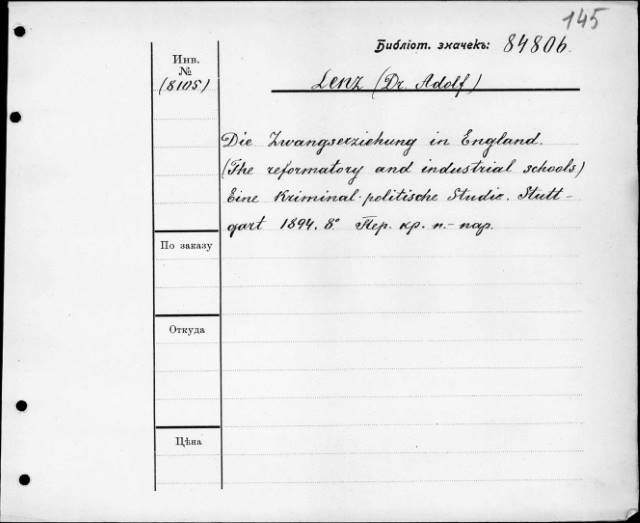 145
Библіот. значекъ: 84806.
Инв.
№
(8105)
Lenz (Dr. Adolf)
Die Zwangserziehung in England.
(The reformatory and industrial schools)
Eine kriminal-politische Studie. Stutt-
gart 1894. 8º. Пер. кр. п.-пар.
По заказу
Откуда
Цѣна